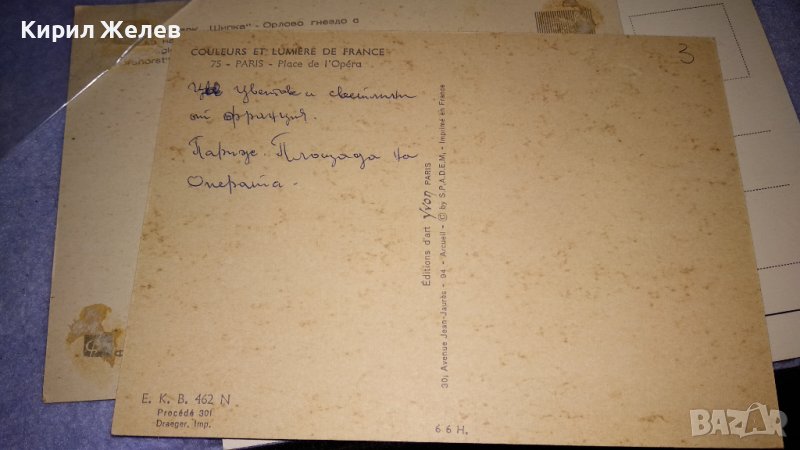 Кирил Желев
"Шипка" - Орлово гнездо
COULEURS ET LUMIÈRE DE FRANCE
75 - PARIS - Place de l'Opéra
3
Цветове и светлини
от Франция.
Париж. Площада на
Операта -
Éditions d'art Yvon PARIS
30, Avenue Jean-Jaurès - 94 - Arcueil - © by S.P.A.D.E.M. - Imprimé en France
E. K. B. 462 N
Procédé 301
Draeger, Imp.
6 6 H.
BAZAR